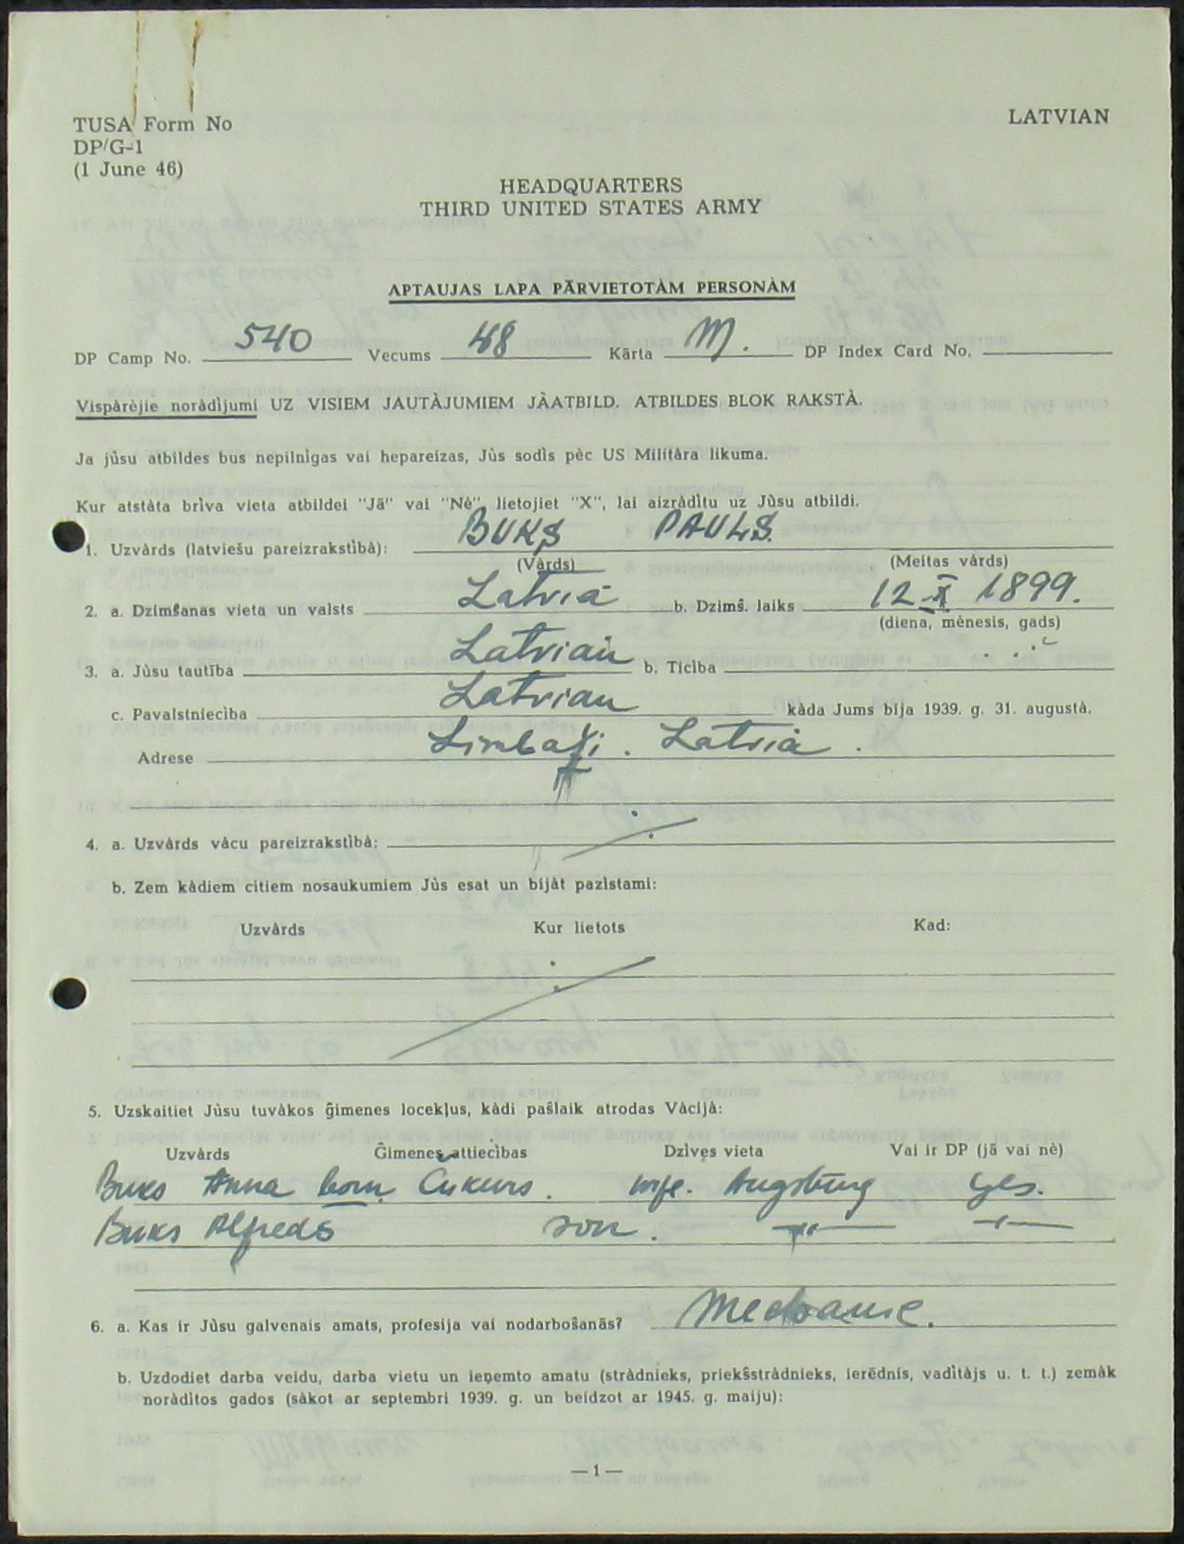 TUSA Form No
LATVIAN
DP/G-1
(1 June 46)
HEADQUARTERS
THIRD UNITED STATES ARMY
APTAUJAS LAPA PĀRVIETOTÀM PERSONÀM
DP Camp No. 540 Vecums 48 Kārta M. DP Index Card No.
Vispàrèjie noràdìjumi UZ VISIEM JAUTÀJUMIEM JÀATBILD. ATBILDES BLOK RAKSTÀ.
Ja jùsu atbildes bus nepilnìgas vai hepareizas, Jùs sodìs pèc US Militàra likuma.
Kur atstàta brìva vieta atbildei "Jā" vai "Nè", lietojiet "X", lai aizràdìtu uz Jùsu atbildi.
1. Uzvàrds (latviešu pareizrakstìbà): BUKS PAULS.
(Vàrds) (Meitas vàrds)
2. a. Dzimšanas vieta un valsts Latvia b. Dzimš. laiks 12-X 1899.
(diena, mènesis, gads)
3. a. Jùsu tautība Latvian b. Ticìba
c. Pavalstniecìba Latvian kàda Jums bija 1939. g. 31. augustà.
Adrese Limbaži. Latvia.
4. a. Uzvàrds vàcu pareizrakstìbà:
b. Zem kàdiem citiem nosaukumiem Jùs esat un bijàt pazìstami:
Uzvàrds Kur lietots Kad:
5. Uzskaitiet Jùsu tuvàkos ğimenes locekļus, kàdi pašlaik atrodas Vàcijà:
Uzvàrds Ğimenes attiecìbas Dzìves vieta Vai ir DP (jā vai nè)
Buks Anna born. Cukurs. wife. Augsburg yes.
Buks Alfreds son. —"— —"—
6. a. Kas ir Jùsu galvenais amats, profesija vai nodarbošanās? Mechanic.
b. Uzdodiet darba veidu, darba vietu un ieņemto amatu (stràdnieks, priekšstràdnieks, ierēdnis, vadìtàjs u. t. t.) zemàk
noràdìtos gados (sàkot ar septembri 1939. g. un beidzot ar 1945. g. maiju):
—1—